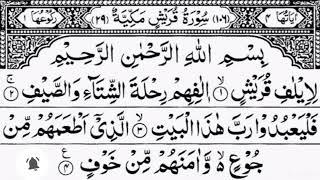 اٰيَاتُهَا ٤ (١٠٦) سُوْرَةُ قُرَيْشٍ مَكِّيَّةٌ (٢٩) رُكُوْعُهَا ١
بِسْمِ اللّٰهِ الرَّحْمٰنِ الرَّحِيْمِ
لِاِيْلٰفِ قُرَيْشٍ ۙ ١ اٖلٰفِهِمْ رِحْلَةَ الشِّتَآءِ وَالصَّيْفِ ۚ ٢
فَلْيَعْبُدُوْا رَبَّ هٰذَا الْبَيْتِ ۙ ٣ الَّذِيْٓ اَطْعَمَهُمْ مِّنْ
جُوْعٍ ۙ٥ وَّاٰمَنَهُمْ مِّنْ خَوْفٍ ٤ ع